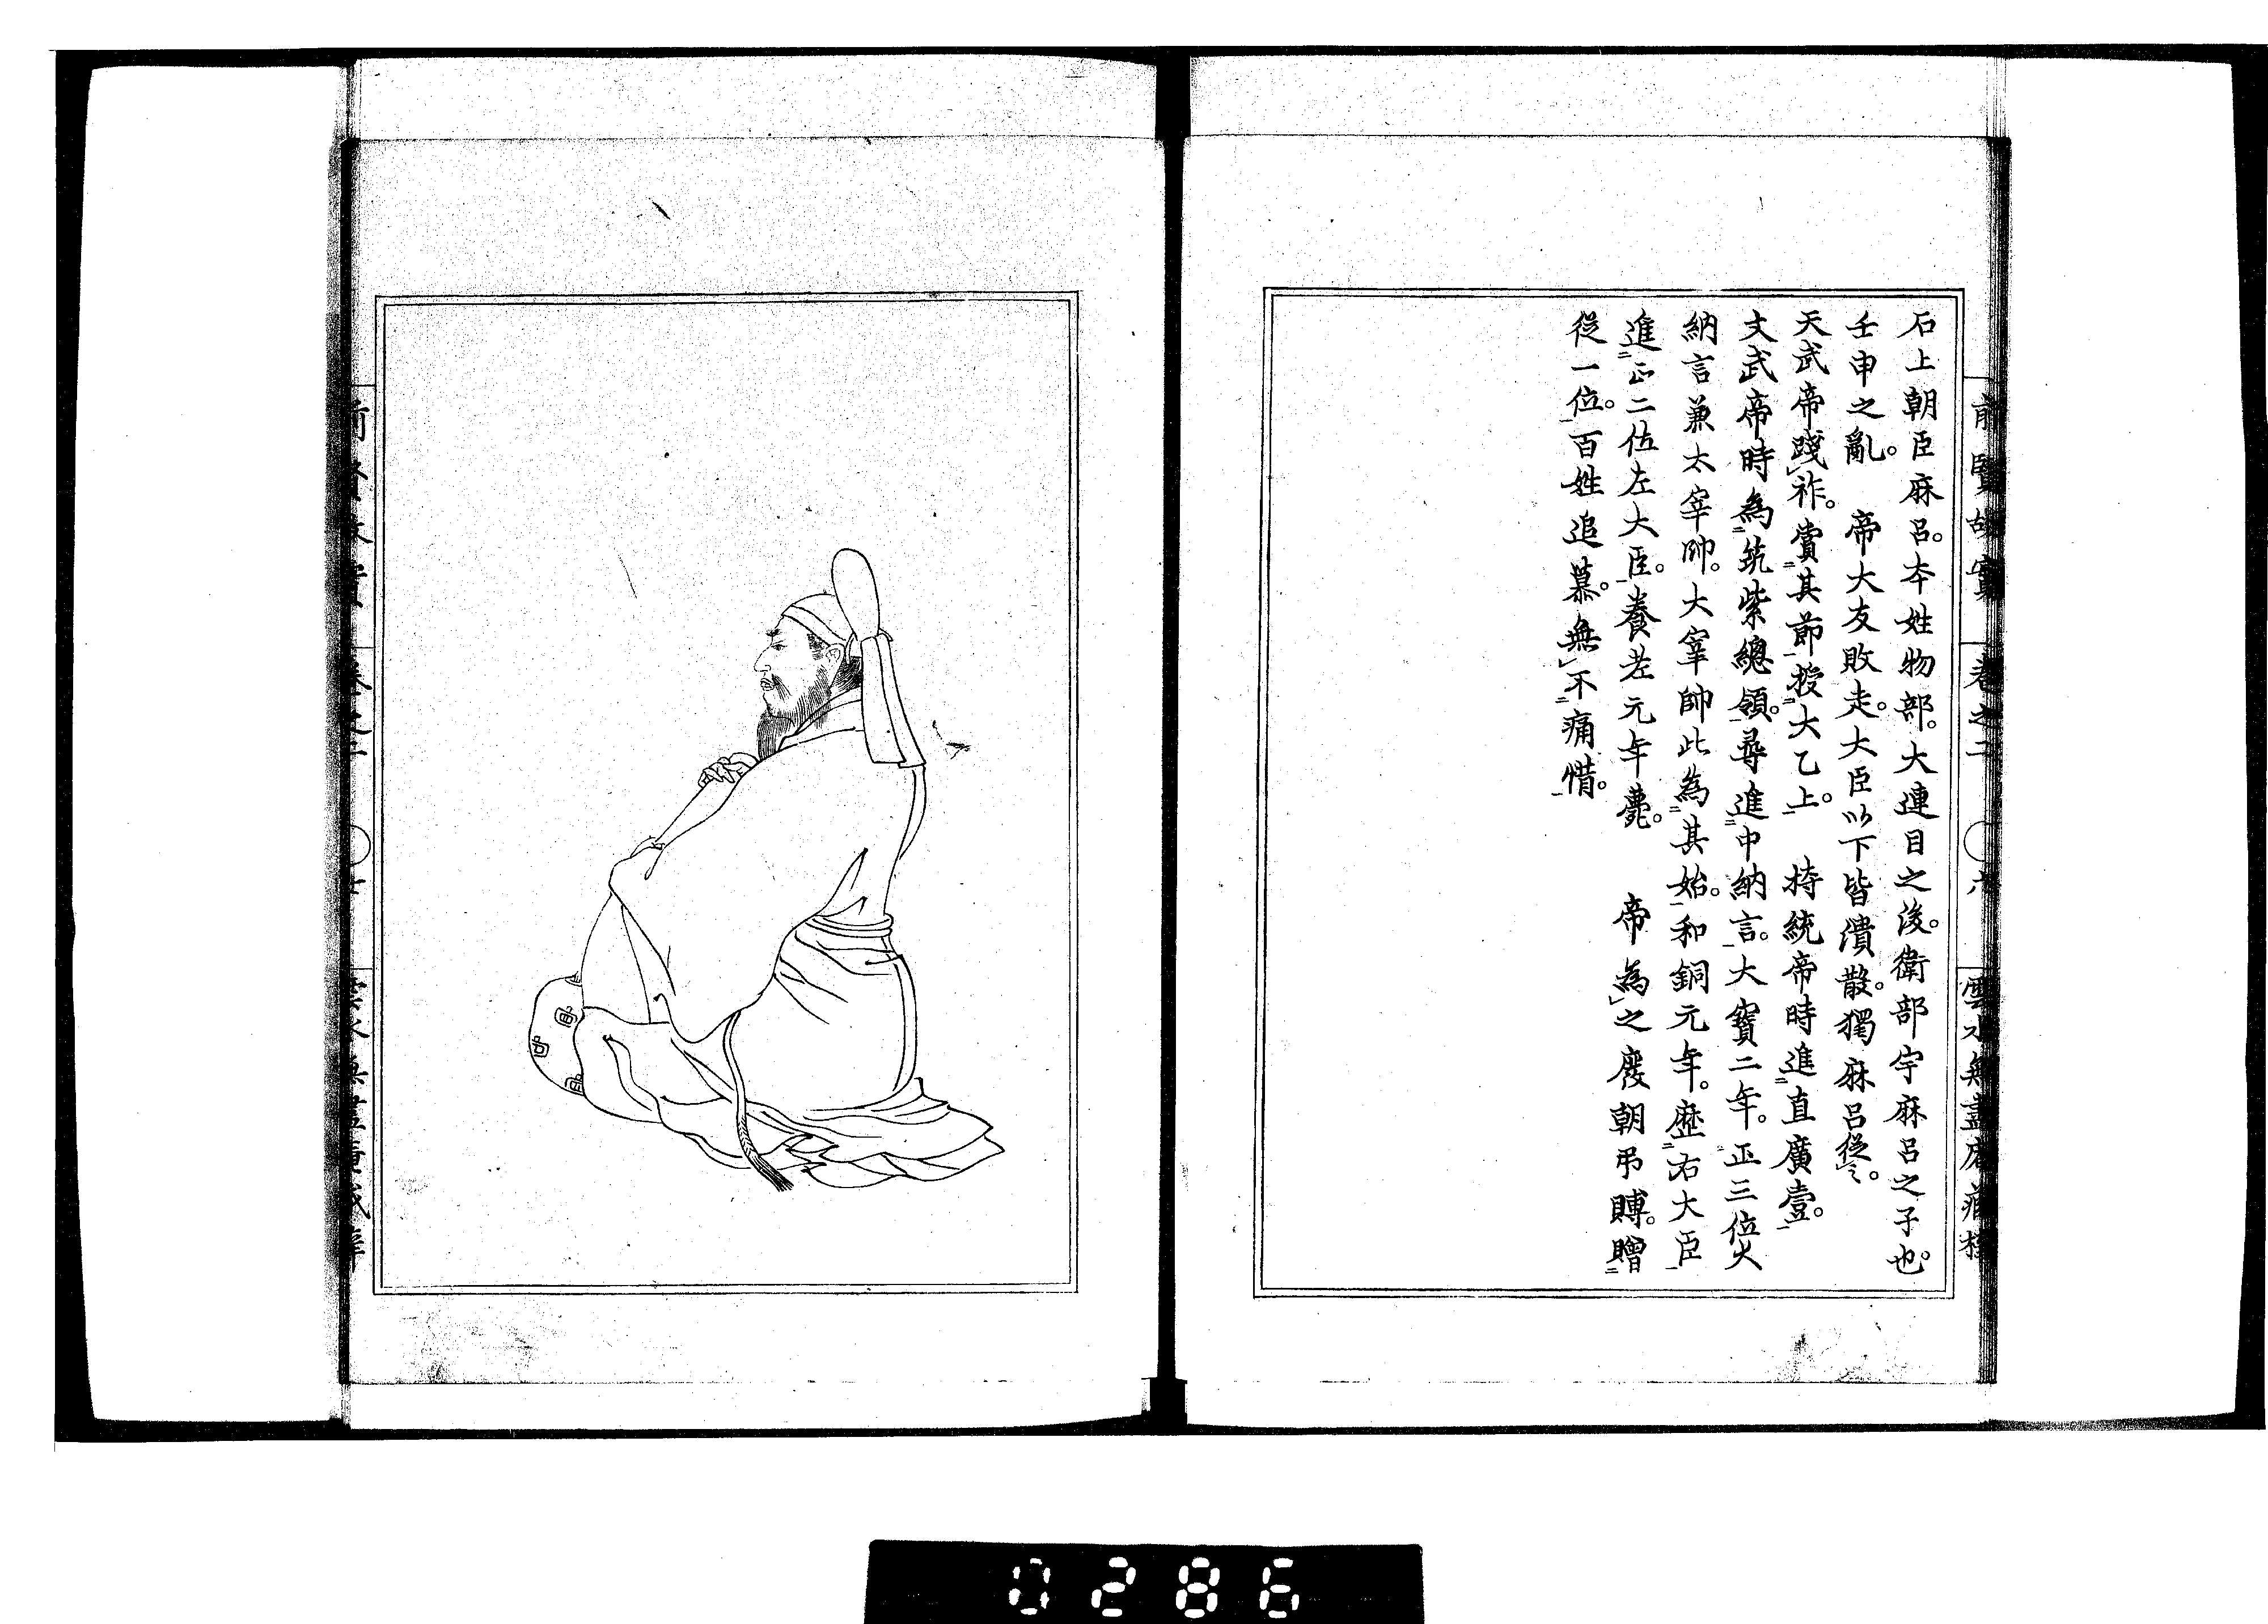 前賢故實 卷之二 ○六 雲水無盡庵藏
石上朝臣麻呂。本姓物部。大連目之後。衛部宇麻呂之子也。
壬申之亂。 帝大友敗走。大臣以下皆潰散。獨麻呂從之。
天武帝踐祚。賞其節授大乙上。 持統帝時進直廣壹。
文武帝時為筑紫總領。尋進中納言。大寶二年。正三位大
納言兼太宰帥。大宰帥此為其始。和銅元年。歷右大臣
進正二位左大臣。養老元年薨。 帝為之廢朝弔賻。贈
從一位。百姓追慕。無不痛惜。
0286